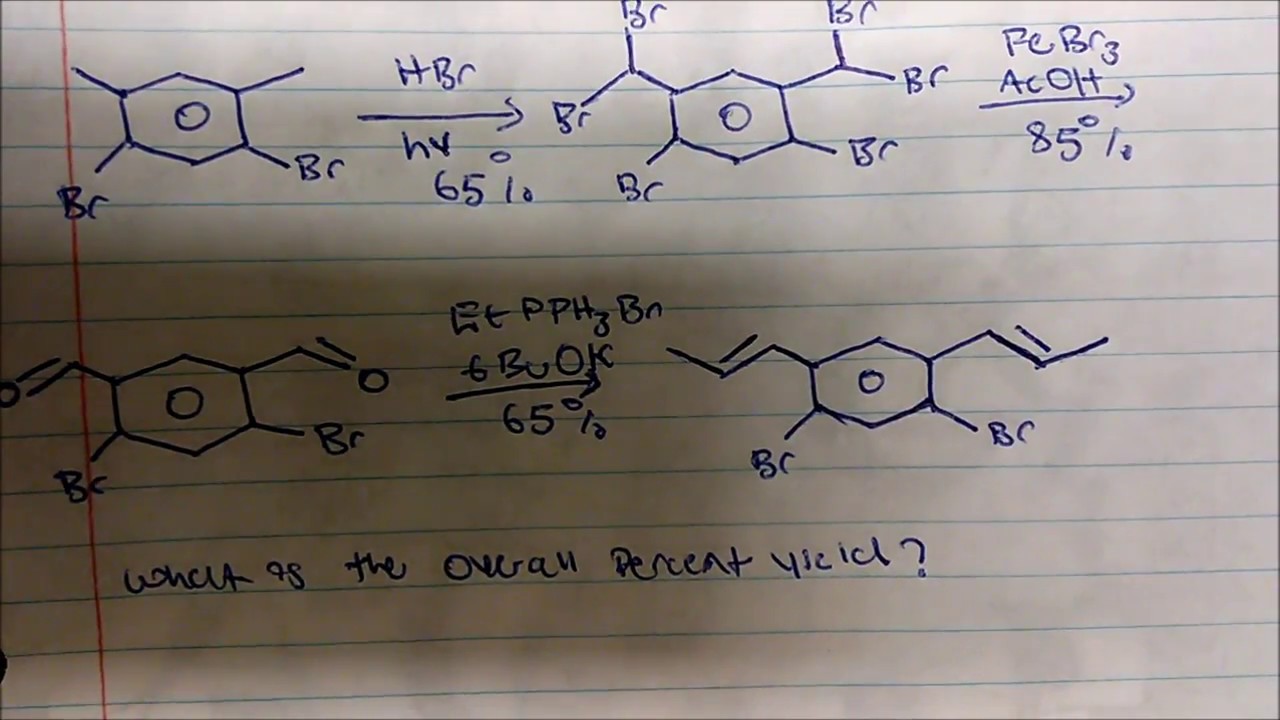 Br Br
HBr Br FeBr3
Br AcOH
hν Br 85%
Br 65% Br
Br
EtPPH3Br
O O tBuOK
65%
Br Br
Br Br
What is the overall Percent yield?